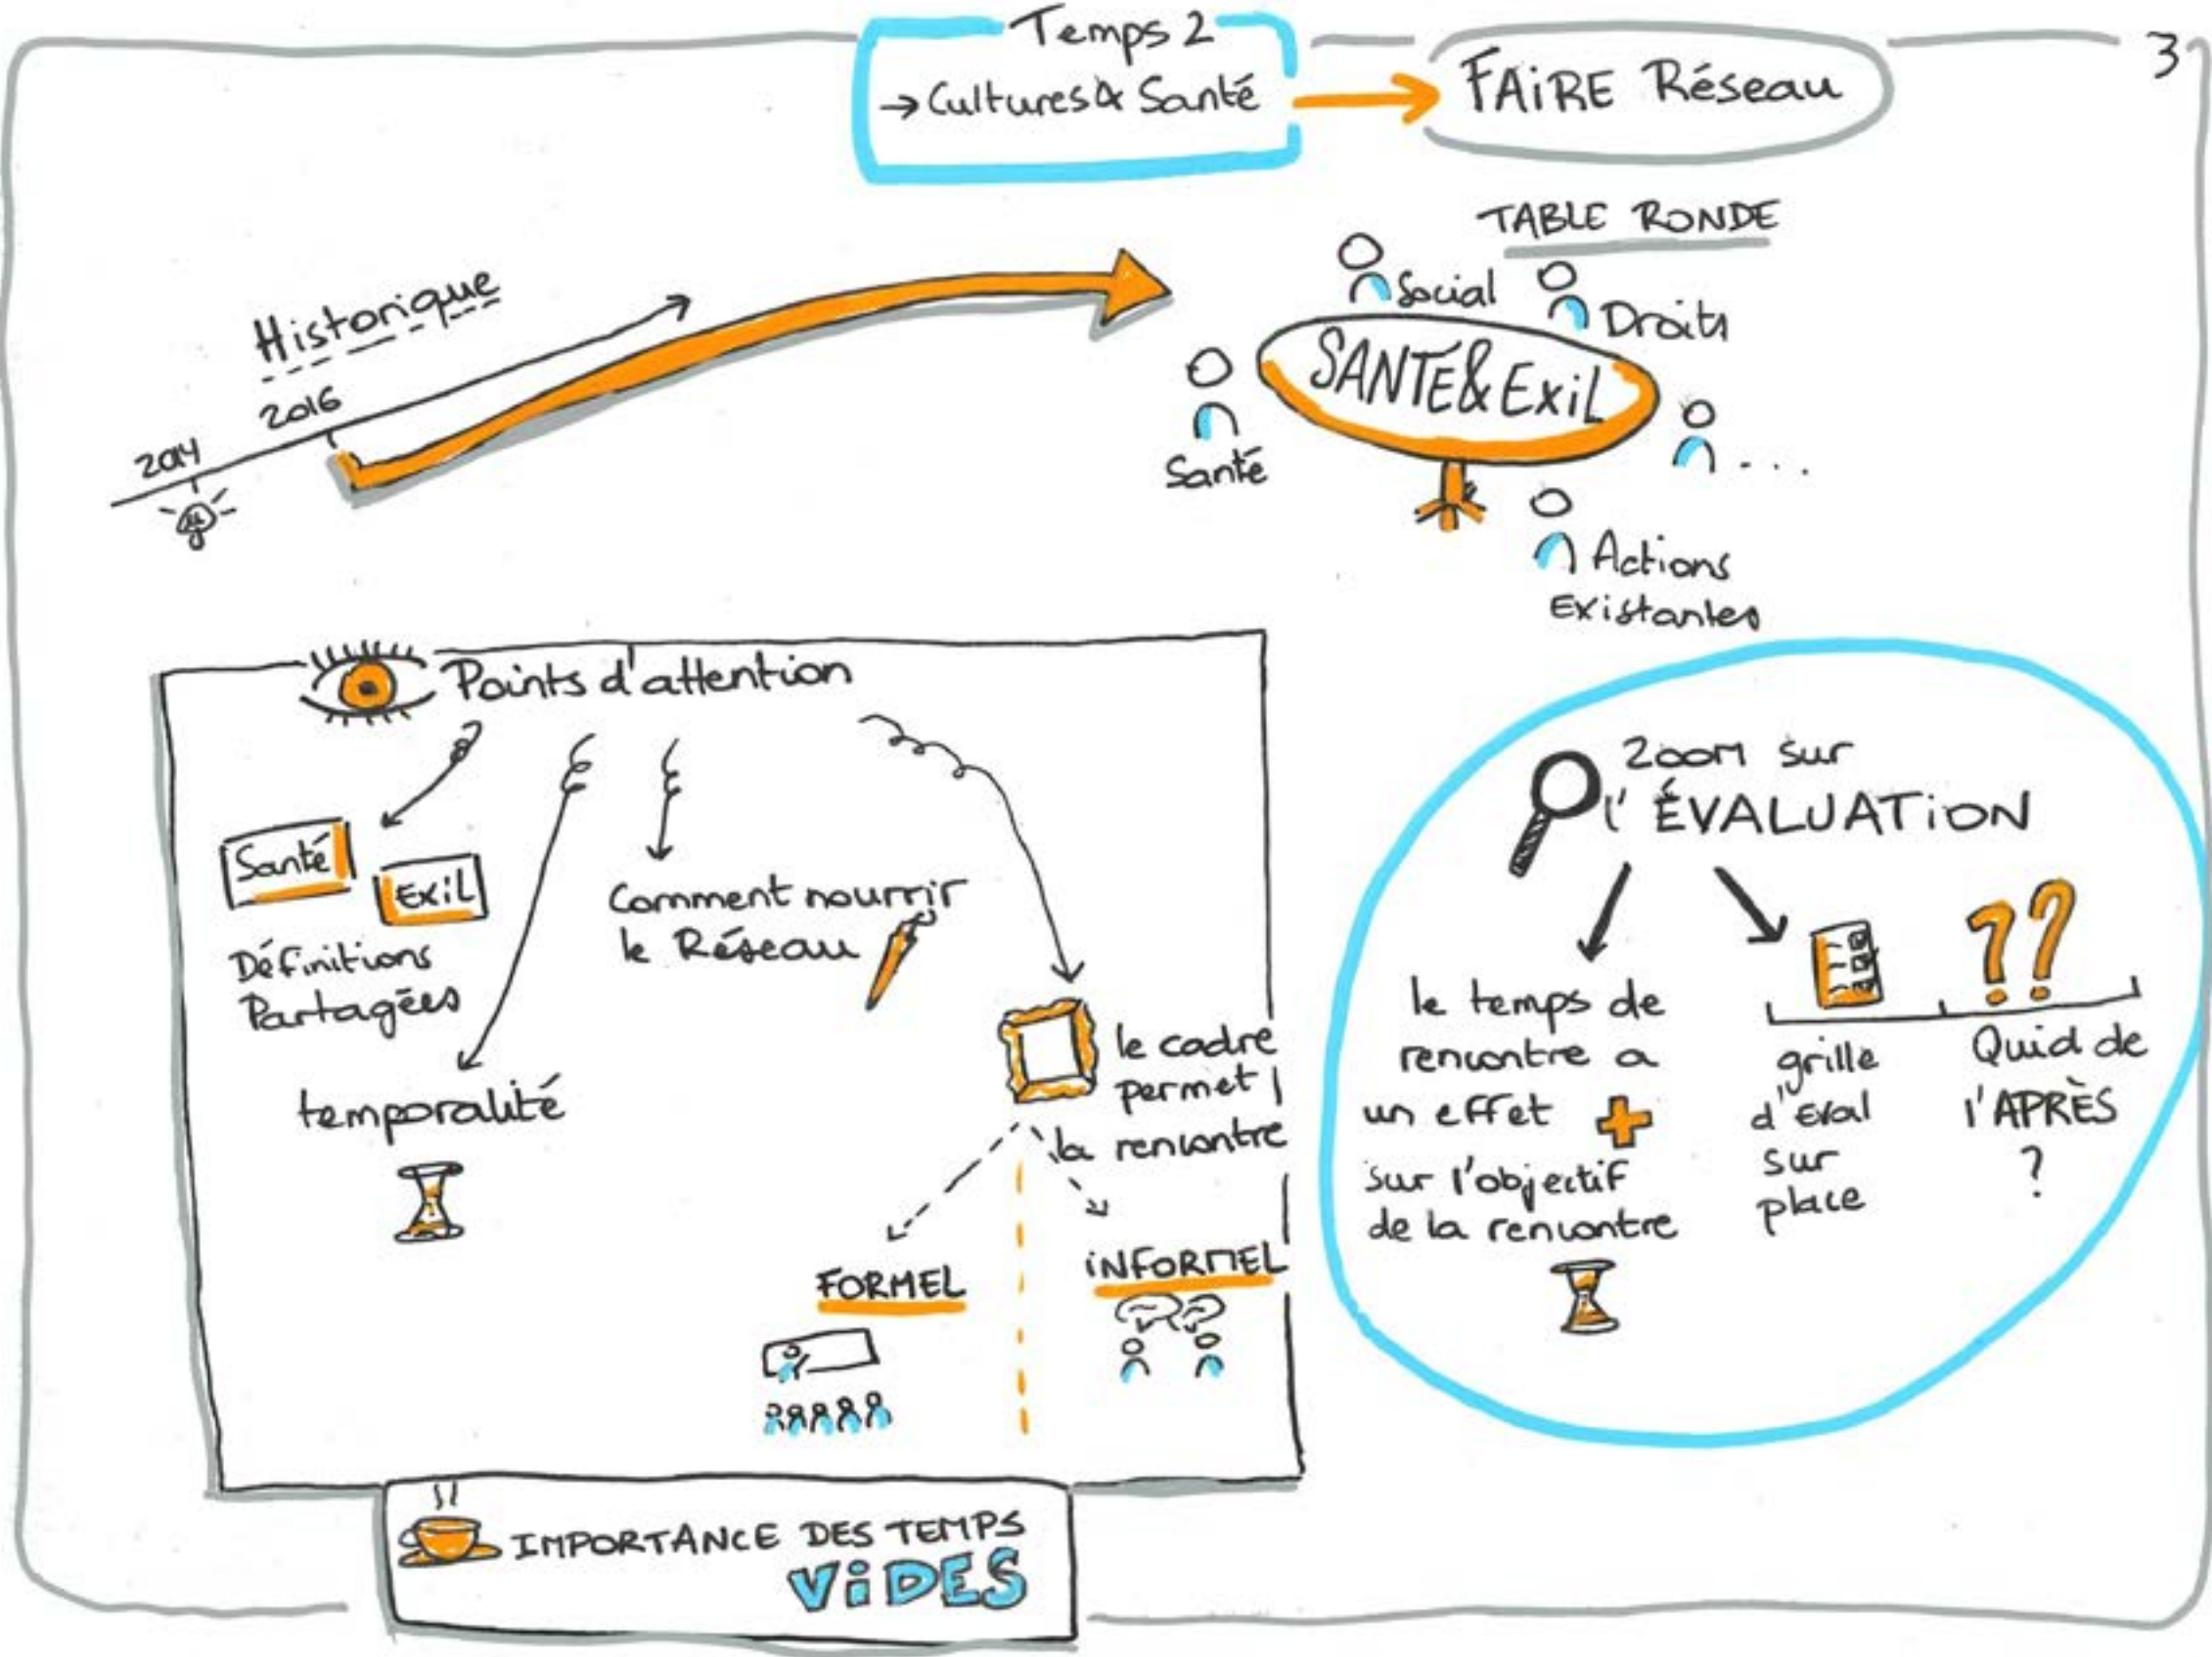 3
Temps 2
→ Cultures & Santé
FAiRE Réseau
Historique
2014
2016
TABLE RONDE
Social
Droits
SANTÉ & ExiL
Santé
...
Actions
Existantes
Points d'attention
Santé
ExiL
Définitions
Partagées
temporalité
Comment nourrir
le Réseau
le cadre
permet
la rencontre
FORMEL
iNFORMEL
IMPORTANCE DES TEMPS
ViDES
Zoom sur
l'ÉVALUATiON
le temps de
rencontre a
un effet +
sur l'objectif
de la rencontre
grille
d'Eval
sur
place
??
Quid de
l'APRÈS
?